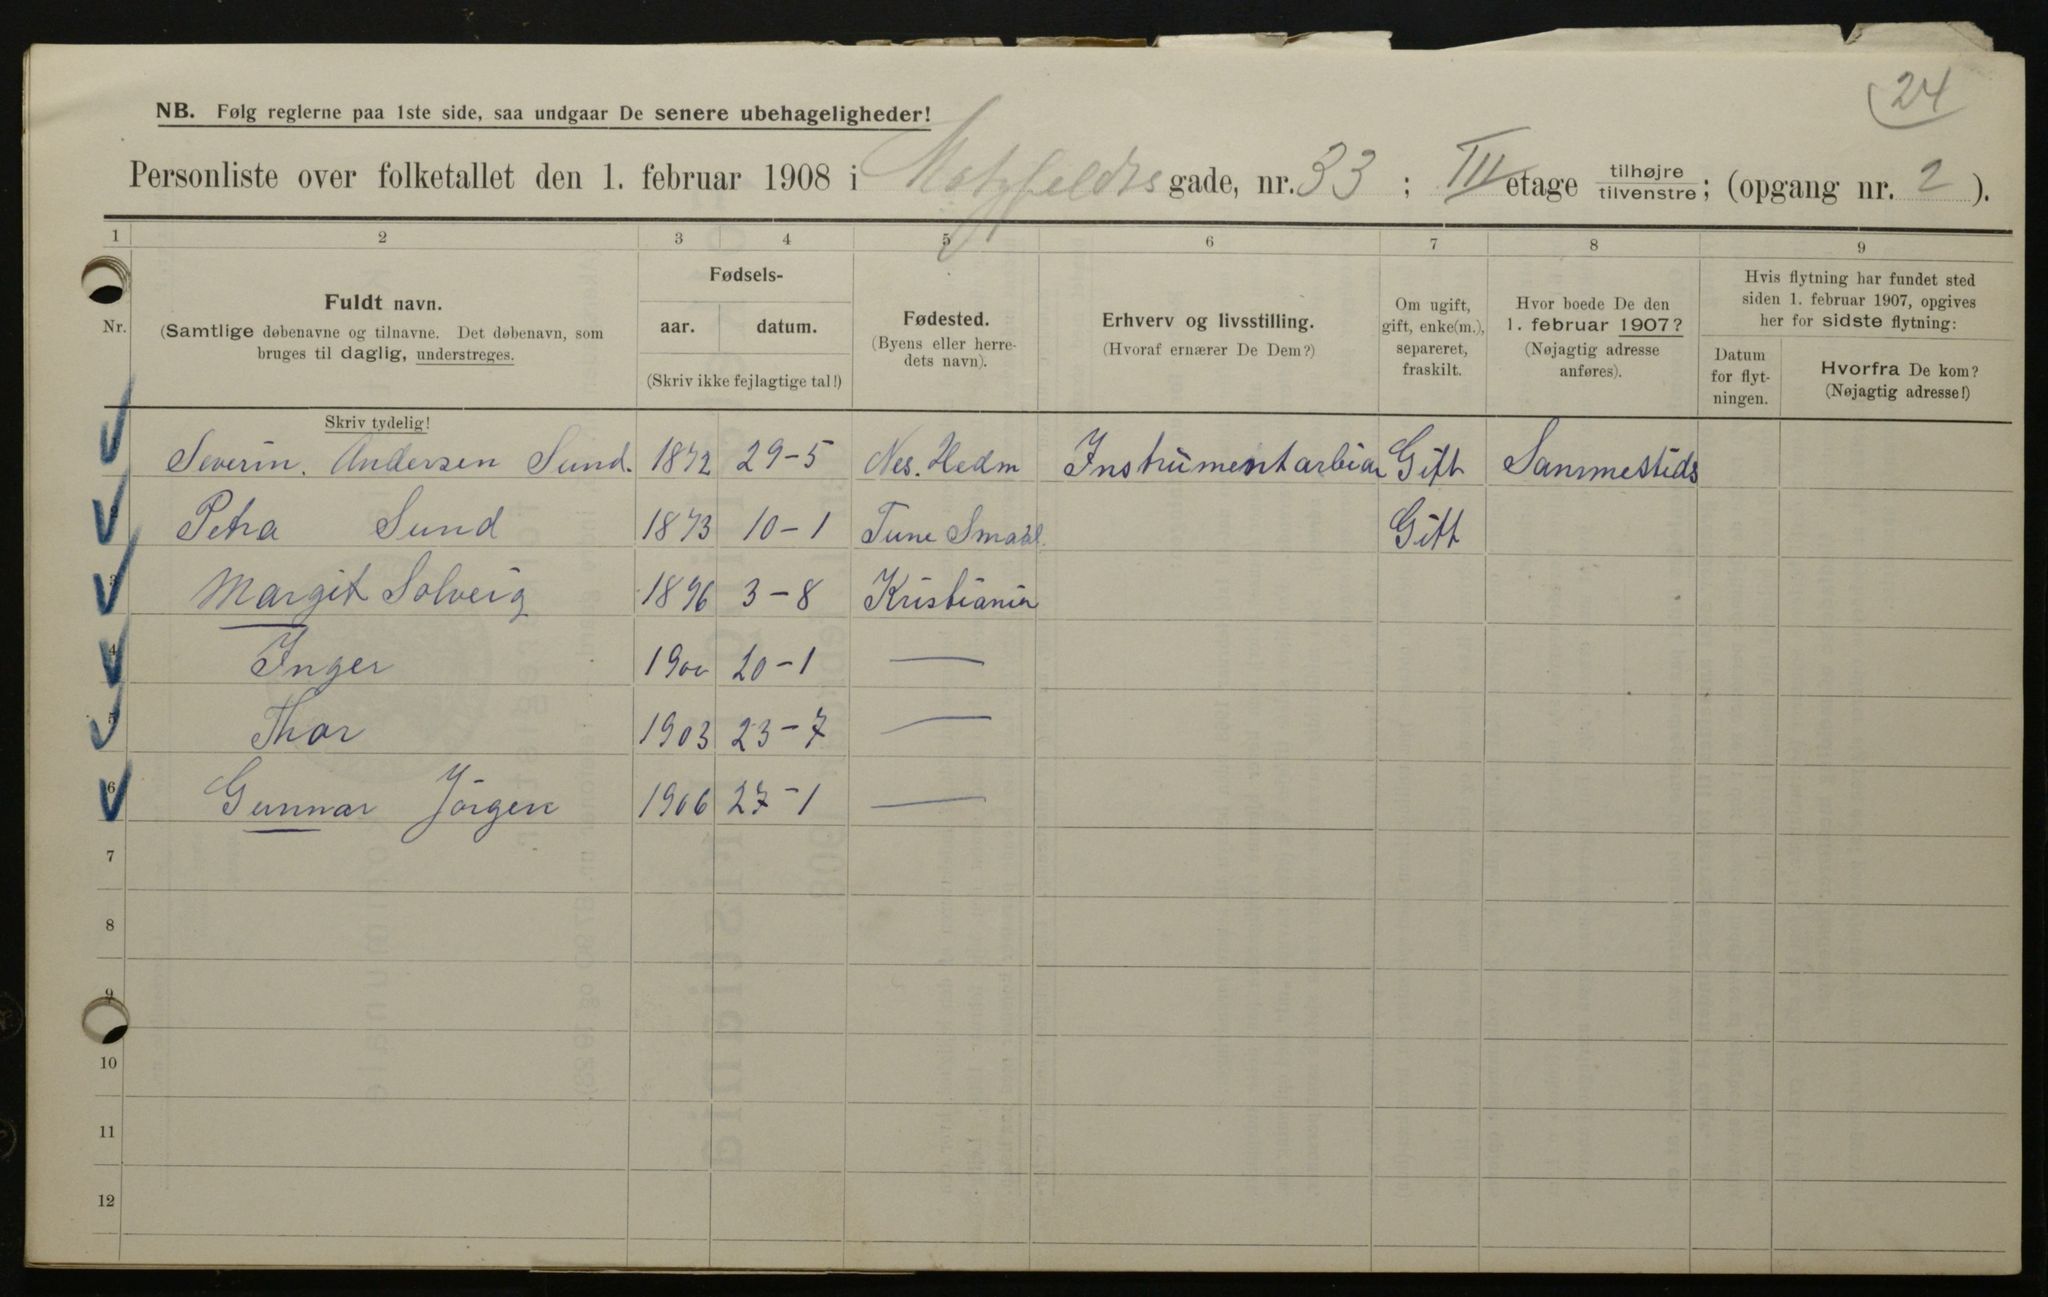 24
NB. Følg reglerne paa 1ste side, saa undgaar De senere ubehageligheder!
Personliste over folketallet den 1. februar 1908 i Motzfeldts gade, nr. 33 ; III etage tilhøjre tilvenstre; (opgang nr. 2 ).
1 2 3 4 5 6 7 8 9
Nr.
Fuldt navn.
(Samtlige døbenavne og tilnavne. Det døbenavn, som
bruges til daglig, understreges.
Fødsels-
aar. datum.
(Skriv ikke fejlagtige tal!)
Fødested.
(Byens eller herre-
dets navn).
Erhverv og livsstilling.
(Hvoraf ernærer De Dem?)
Om ugift,
gift, enke(m.),
separeret,
fraskilt.
Hvor boede De den
1. februar 1907?
(Nøjagtig adresse
anføres).
Hvis flytning har fundet sted
siden 1. februar 1907, opgives
her for sidste flytning:
Datum
for flyt-
ningen.
Hvorfra De kom?
(Nøjagtig adresse!)
Skriv tydelig!
1 Severin. Andersen Sund. 1872 29-5 Nes. Hedm Instrumentarbiar Gift Sammesteds
2 Petra Sund 1873 10-1 Tune Smaal. Gift
3 Margit Solveig 1896 3-8 Kristiania
4 Inger 1900 20-1 —
5 Thor 1903 23-7 —
6 Gunnar Jörgen 1906 27-1 —
7
8
9
10
11
12